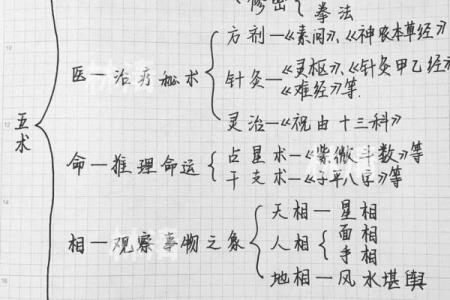 修密
拳法
方剂—《素问》、《神农本草经》
医—治疗秘术
针灸—《灵枢》、《针灸甲乙经
《难经》等
灵治—《祝由十三科》
五术
占星术—《紫微斗数》等
命—推理命运
干支术—《子平八字》等
天相—星相
相—观察事物之象
人相
面相
手相
地相—风水堪舆